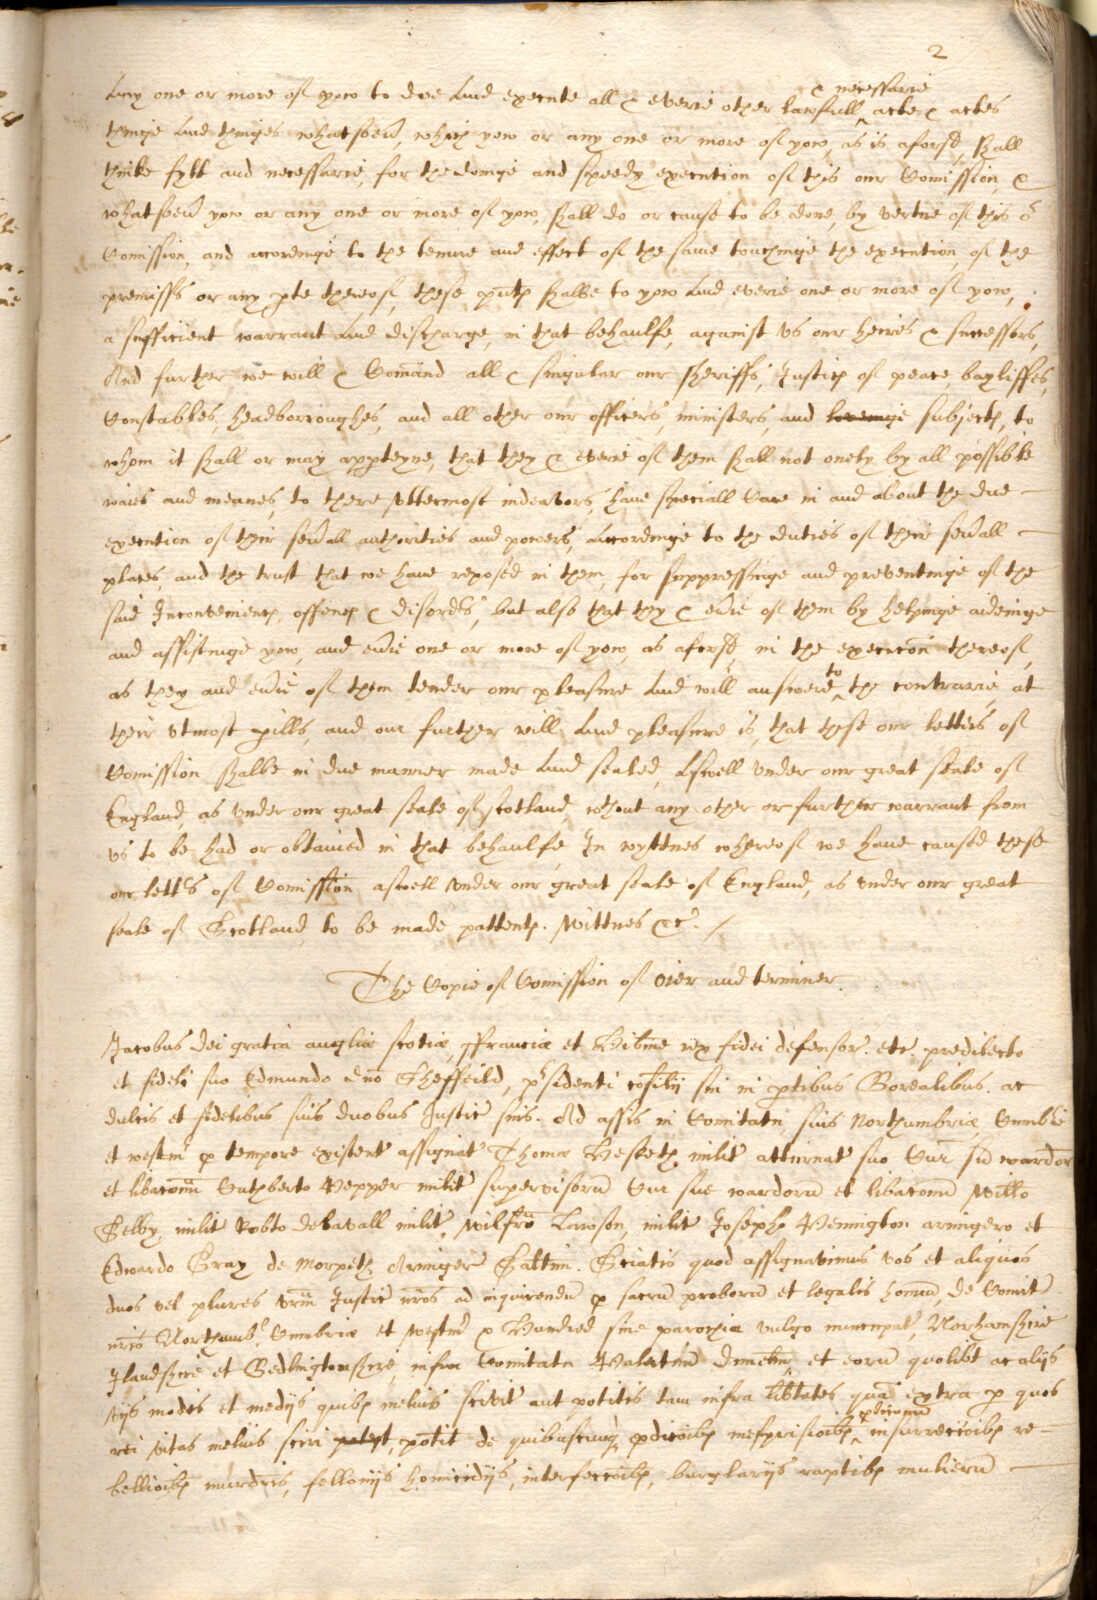 2
Any one or more of yow to doe And execute all & everie other lawfull & necessarie acte & actes
thinge And thinges whatsoeũ, which yow or any one or more of yow, as is aforsd, shall
thinke fytt and necessarie, for the doinge and speedy execution of this our Comission, &
whatsoeũ yow or any one or more of yow, shall do or cause to be done, by vertue of this or
Comission, and accordinge to the tenure and effect of the same touchinge the execution, of the
premisses or any pte thereof, these pñts shalbe to yow And everie one or more of yow,
a sufficient warrant And discharge, in that behaulfe, against vs our heires & successors,
And further we will & Comãnd all & singular our sheriffs, Justices of peace, bayliffes,
Constables, headborroughes, and all other our officers, ministers, and loveinge subjects, to
whom it shall or may apperteyne, that they & everie of them shall not onely by all possible
waies and meanes, to there vttermost indeavors, have speciall Care in and about the due
execution of their seũall authorities and powers, Accordinge to the duties of their seũall
places, and the trust that we have reposed in them, for suppressinge and preventinge of the
said Inconveniencs, offencs & disordrs, but also that they & eũie of them by helpinge aideinge
and assistinge yow, and eũie one or more of yow, as aforsd, in the execucõn thereof,
as they and eũie of them tender our pleasure And will answere to the contrarie, at
their vtmost pills, and our further will And pleasure is, that these our letters of
Comission shalbe in due manner made And sealed, Aswell vnder our great seale of
England, as vnder our great seale of scotland, wthout any other or further warrant from
vs to be had or obtained in that behaulfe, In wyttnes whereof we have caused these
our lettrs of Comission aswell vnder our great seale of England, as vnder our great
seale of Scotland, to be made pattents. Wittnes &c. /
The Copie of Comission of Oier and terminer.
Jacobus dei gratia angliæ scotiæ, ffranciæ et Hibñie rex fidei defensor. etc. predilecto
et fideli suo Edmundo dno Sheffeild, psidenti cosilij sui in ptibus Borealibus. ac
dilectis et fidelibus suis duobus Justic suis. Ad assis in Comitatu suis Northumbriæ, Cumbrie
et westm p tempore existent assignat Thomæ Hesketh milit atturnat suo Cur sue wardor
et libacoñu Cuthberto Pepper milit supervisoru Cur sue wardoru et libaconu, Willo
Selby, milit Robto delavall milit, Wilfro Lawson, milit Josepho Penington armigero et
Edwardo Gray de Morpeth Armiger Saltm. Sciatis quod assignavimus vos et aliquos
duos vel plures vrm Justic nros ad inquirendu p sacru proboru et legaliu hominu, de Comit
nris Northumb, Cumbriæ et westm p Hundred sive parochiæ vulgo nuncupat, Norhamshire
Ilandshire et Bedlingtonshire, infra Comitatu Palatinu Dunelm, et eoru quolibt ac aliis
vijs modis et medijs quibz melius scivit aut potitis tam infra libtates qua extra p quos
rei vitas melius sciri potest, potit de quibuscunq pdicoibz mesprisioibz, insurreccoibz re-
bellioibz murdris, fellonijs homicidijs, interfeccoibz, burglarijs raptibz mulieru